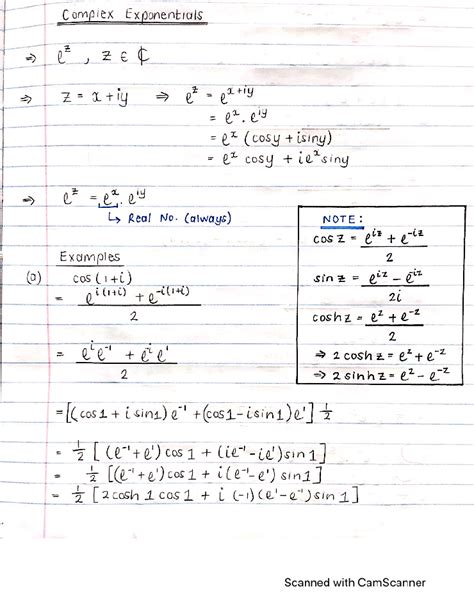 Complex Exponentials
⇒ e^z , z ∈ ₵
⇒ z = x + iy ⇒ e^z = e^{x+iy}
= e^x . e^{iy}
= e^x (cosy + isiny)
= e^x cosy + ie^x siny
⇒ e^z = e^x . e^{iy}
↳ Real No. (always)
NOTE:
cos z = (e^{iz} + e^{-iz}) / 2
sin z = (e^{iz} - e^{iz}) / 2i
cosh z = (e^z + e^{-z}) / 2
⇒ 2 cosh z = e^z + e^{-z}
⇒ 2 sinh z = e^z - e^{-z}
Examples
(a) cos (1+i)
= (e^{i(1+i)} + e^{-i(1+i)}) / 2
= (e^i e^{-1} + e^{-i} e^1) / 2
= [(cos1 + i sin1) e^{-1} + (cos1 - isin1) e^1] 1/2
= 1/2 [ (e^{-1} + e^1) cos 1 + (ie^{-1} - ie^1) sin 1 ]
= 1/2 [(e^{-1} + e^1) cos 1 + i (e^{-1} - e^1) sin 1]
= 1/2 [ 2 cosh 1 cos 1 + i (-1) (e^1 - e^{-1}) sin 1 ]
Scanned with CamScanner